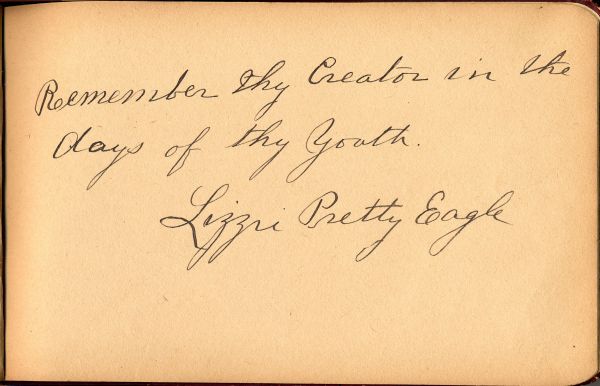 Remember thy Creator in the
days of thy Youth.
Lizzie Pretty Eagle